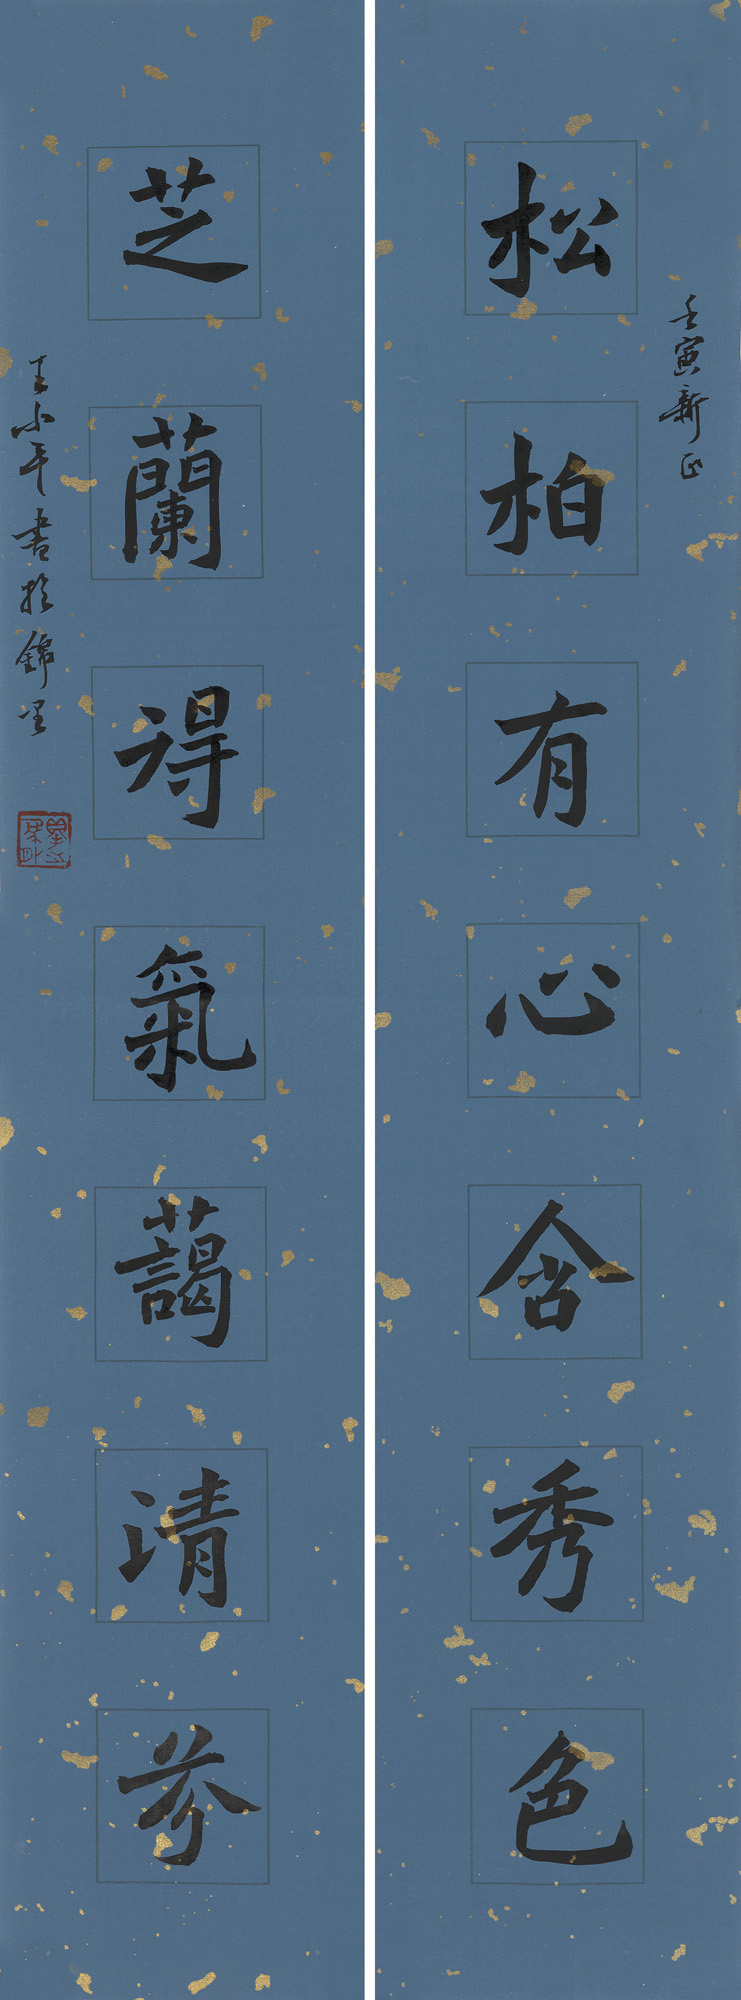 壬寅新正
松柏有心含秀色
芝蘭得氣藹清芬
王小平書於錦里